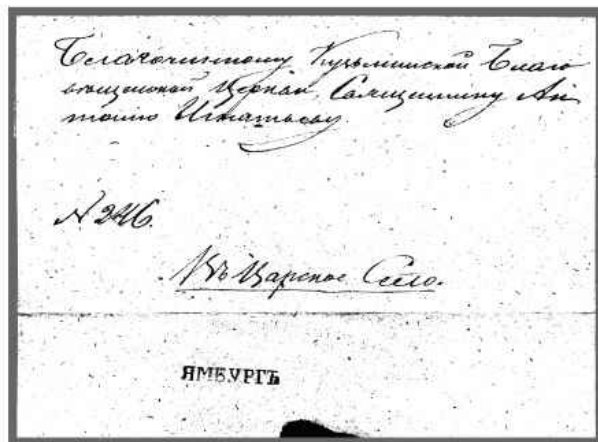 Благочинному Кузьминской Благо
вещенской Церкви, Священнику Ан
тонию Игнатьеву.
N 246.
Въ Царское Село.
ЯМБУРГЪ